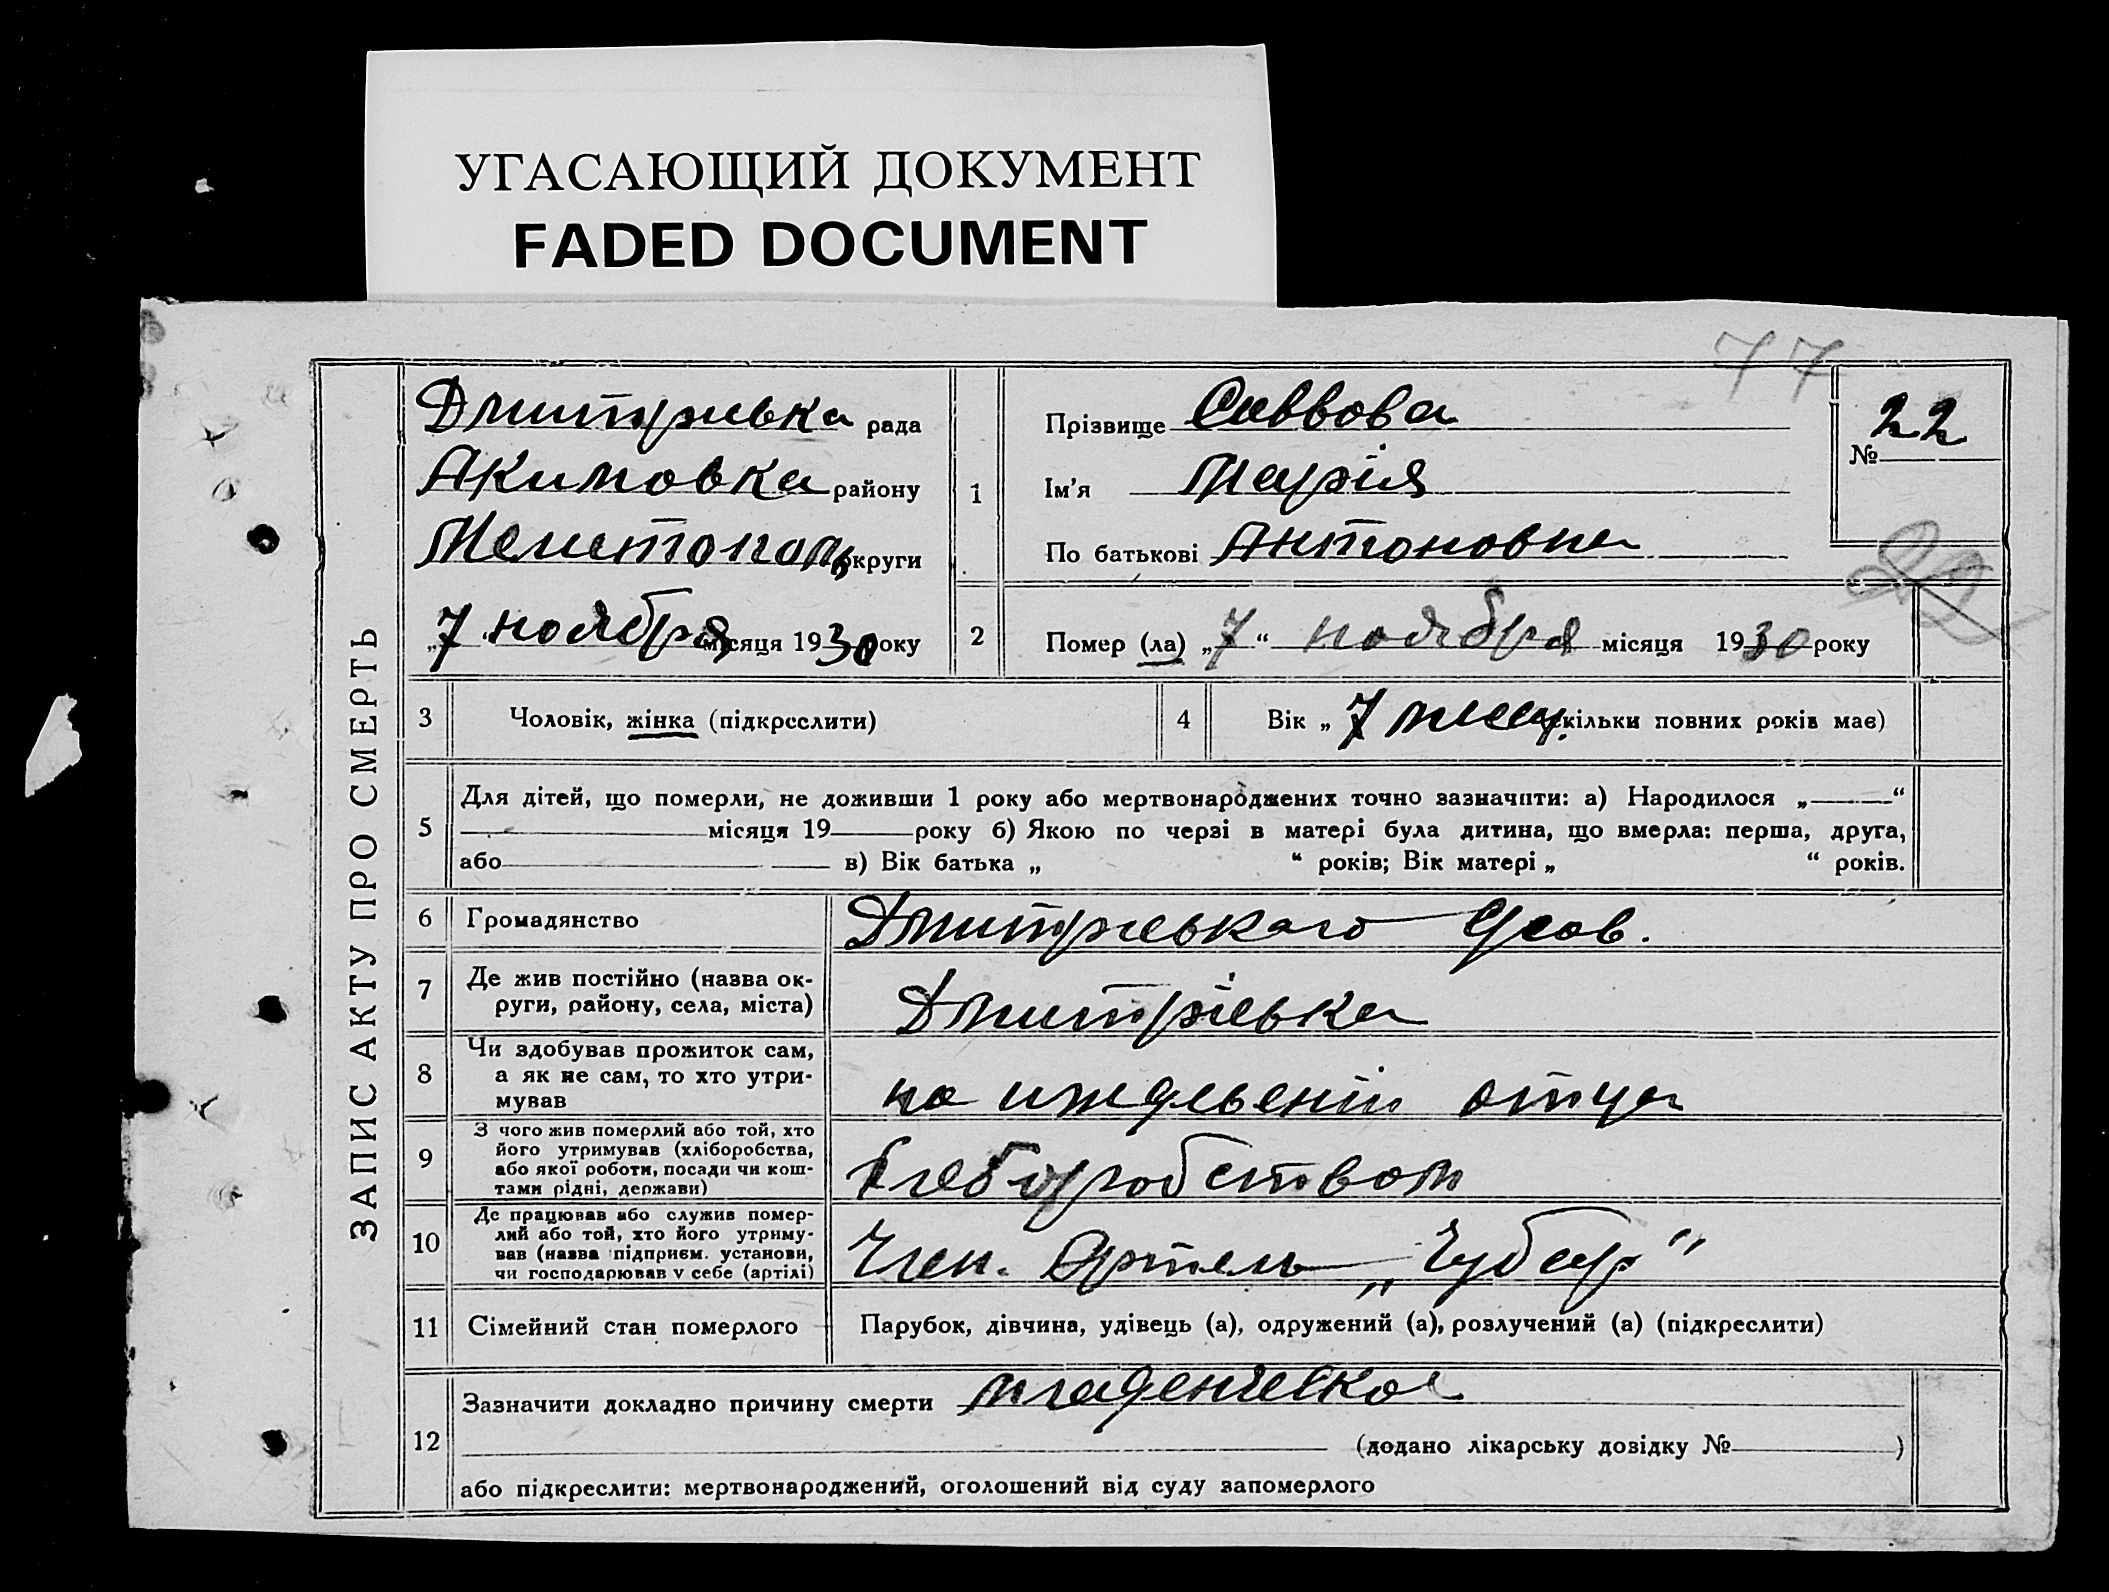 УГАСАЮЩИЙ ДОКУМЕНТ
FADED DOCUMENT
77
ЗАПИС АКТУ ПРО СМЕРТЬ
Дмитриевка рада
Акимовка району
Мелитополь округи
„7 ноября місяця 1930 року
1
Прізвище Саввова
Ім'я Марія
По батькові Антоновна
№ 22
22
2
Помер (ла) „7“ ноября місяця 1930 року
3 Чоловік, жінка (підкреслити)
4 Вік „7 месяц. скільки повних років має)
5
Для дітей, що померли, не доживши 1 року або мертвонароджених точно зазначити: а) Народилося „ “
місяця 19 року б) Якою по черзі в матері була дитина, що вмерла: перша, друга,
або в) Вік батька „ “ років; Вік матері „ “ років.
6 Громадянство Дмитриевкаго
7 Де жив постійно (назва ок-
руги, району, села, міста) Дмитріевка
8 Чи здобував прожиток сам,
а як не сам, то хто утри-
мував на иждевеніи отца
9 З чого жив померлий або той, хто
його утримував (хліборобства,
або якої роботи, посади чи кош-
тами рідні, держави) Хлеборобством
10 Де працював або служив помер-
лий або той, хто його утриму-
вав (назва підприєм. установи,
чи господарював у себе (артілі) Член. Артель „Чубар“
11 Сімейний стан померлого Парубок, дівчина, удівець (а), одружений (а), розлучений (а) (підкреслити)
12
Зазначити докладно причину смерти младенческое
(додано лікарську довідку № )
або підкреслити: мертвонароджений, оголошений від суду запомерлого